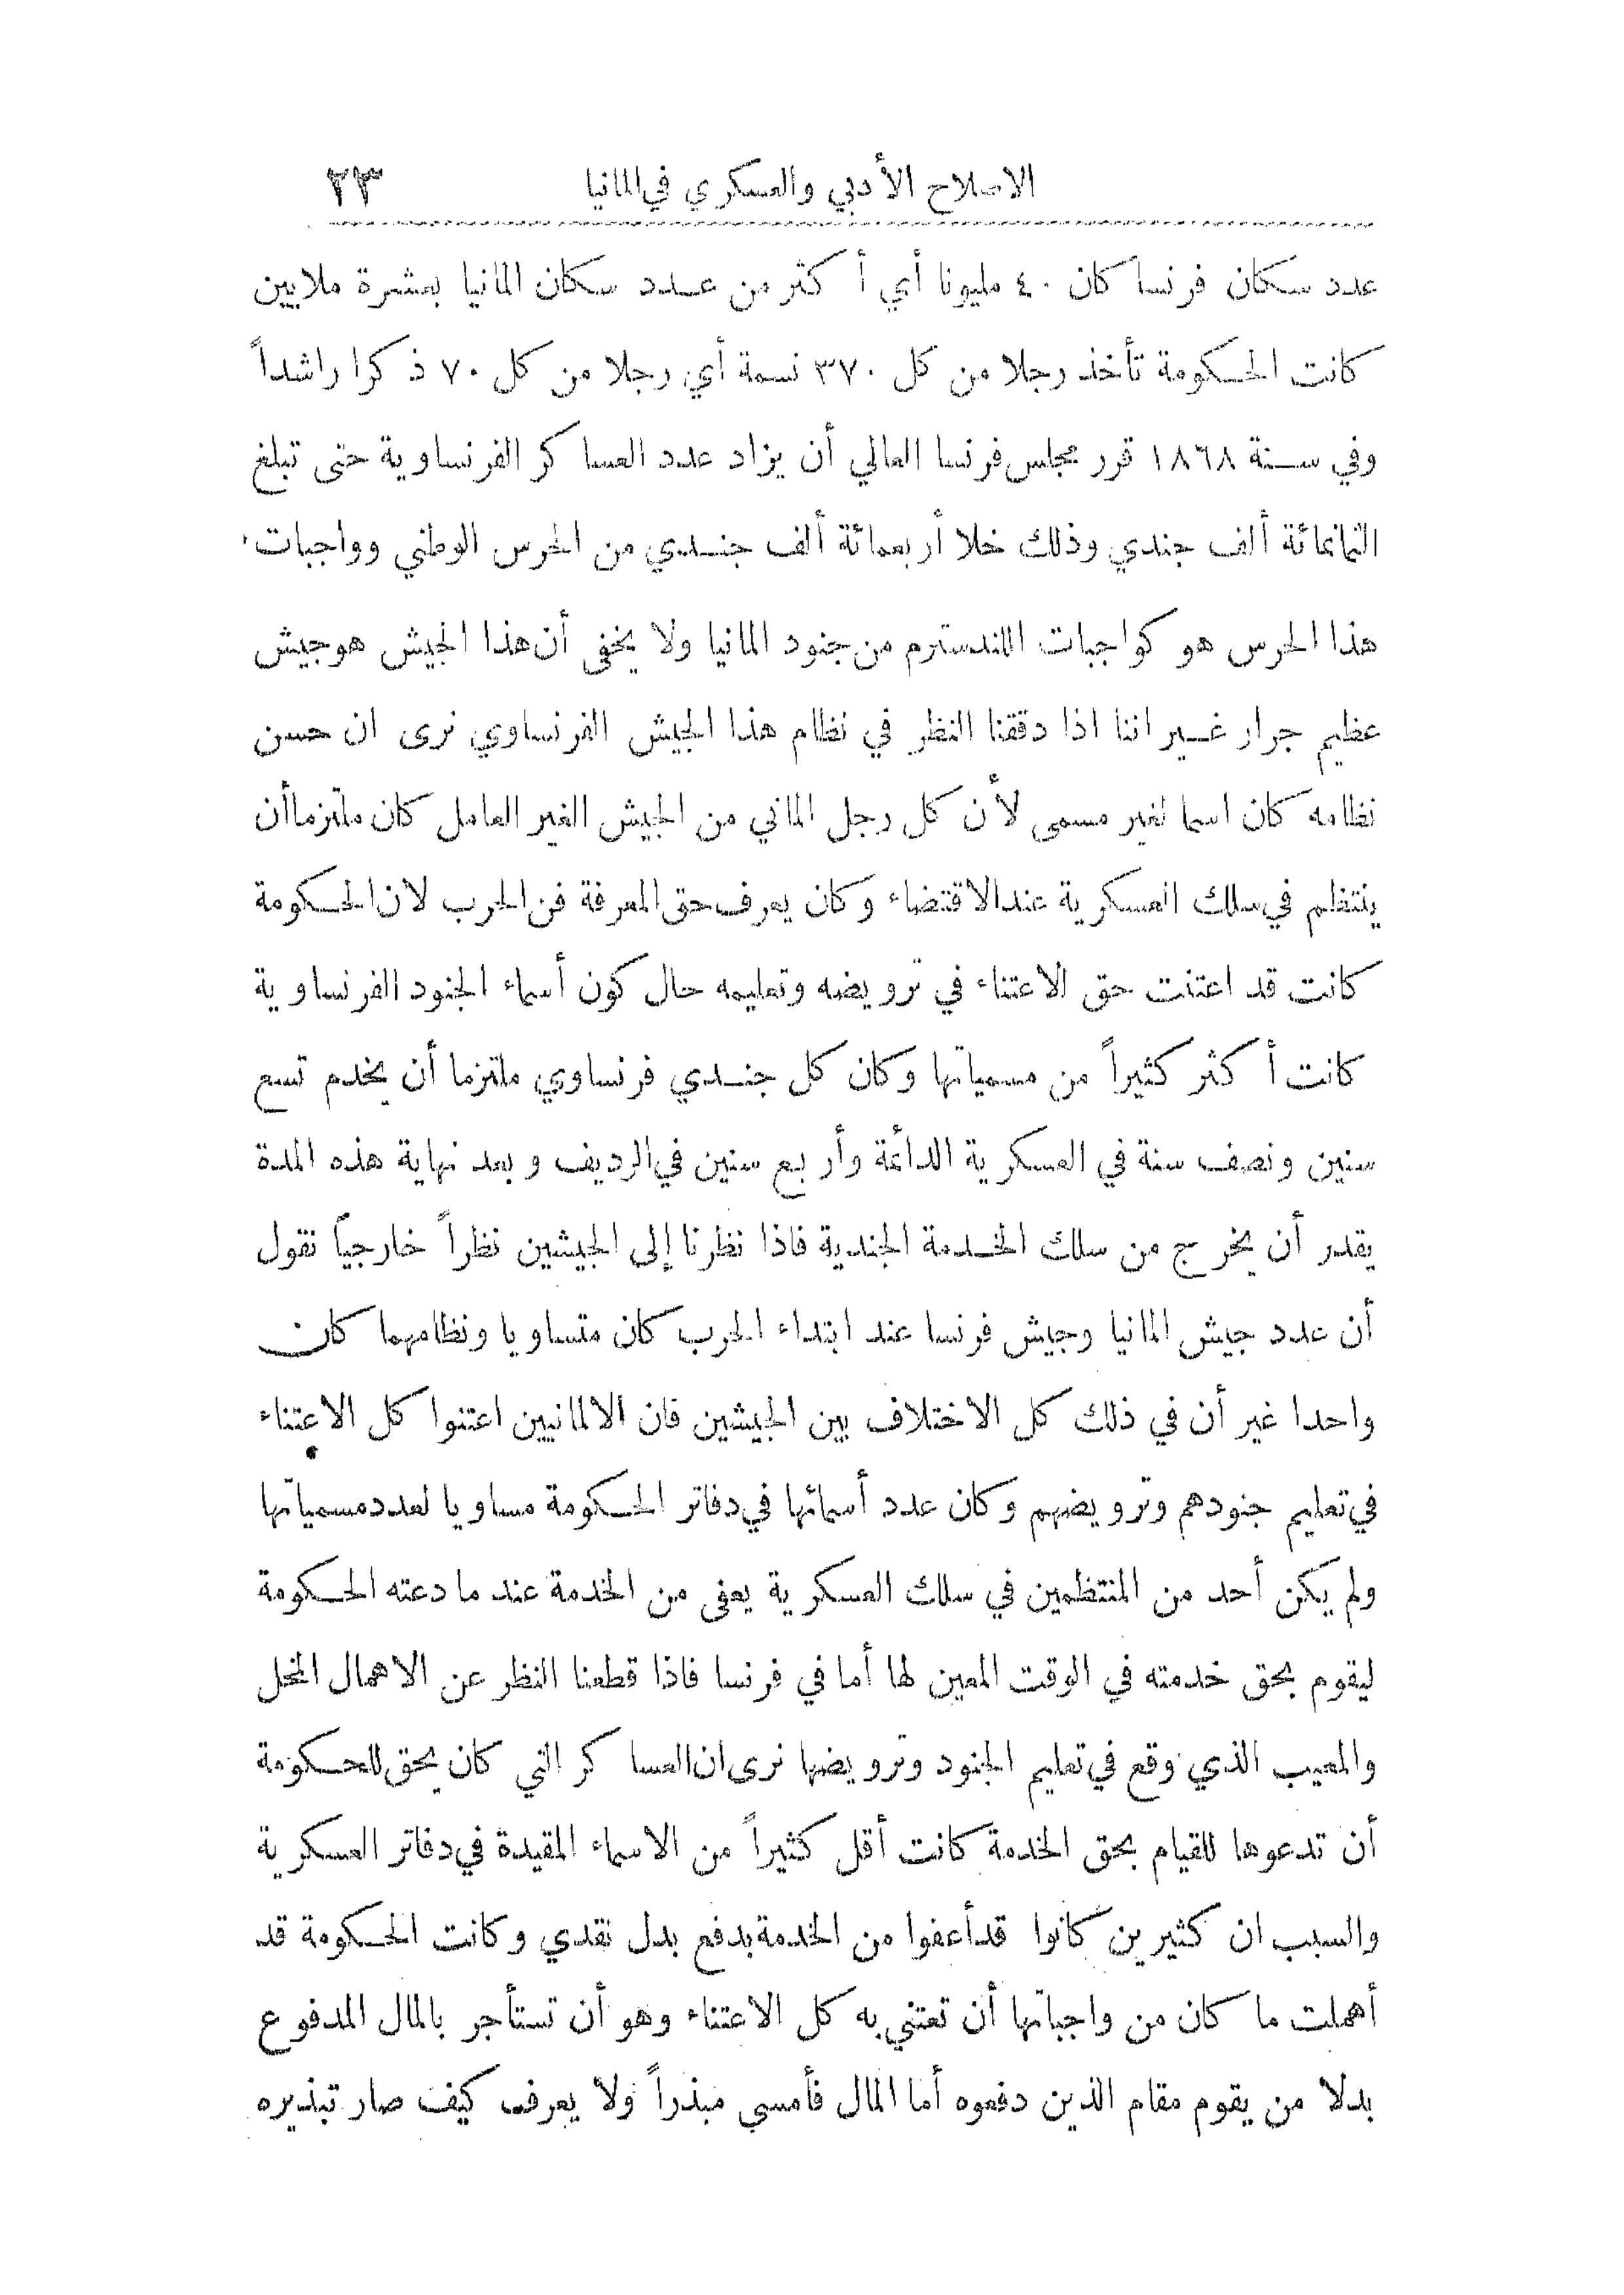 الاصلاح الأدبي والعسكري في المانيا ٢٣
عدد سكان فرنسا كان ٤٠ مليونا أي أكثر من عدد سكان المانيا بعشرة ملايين
كانت الحكومة تأخذ رجلا من كل ٣٧٠ نسمة أي رجلا من كل ٧٠ ذكرا راشداً
وفي سنة ١٨٦٨ قرر مجلس فرنسا العالي أن يزاد عدد العساكر الفرنساوية حتى تبلغ
الثمانمائة ألف جندي وذلك خلا أربعمائة ألف جندي من الحرس الوطني وواجبات
هذا الحرس هو كواجبات اللندسترم من جنود المانيا ولا يخفى أن هذا الجيش هو جيش
عظيم جرار غير اننا اذا دققنا النظر في نظام هذا الجيش الفرنساوي نرى ان حسن
نظامه كان اسما لغير مسمى لأن كل رجل الماني من الجيش الغير العامل كان ملتزما أن
ينتظم في سلك العسكرية عند الاقتضاء وكان يعرف حق المعرفة فن الحرب لان الحكومة
كانت قد اعتنت حق الاعتناء في ترويضه وتعليمه حال كون أسماء الجنود الفرنساوية
كانت أكثر كثيراً من مسمياتها وكان كل جندي فرنساوي ملتزما أن يخدم تسع
سنين ونصف سنة في العسكرية الدائمة وأربع سنين في الرديف وبعد نهاية هذه المدة
يقدر أن يخرج من سلك الخدمة الجندية فاذا نظرنا إلى الجيشين نظراً خارجيًا نقول
أن عدد جيش المانيا وجيش فرنسا عند ابتداء الحرب كان متساويا ونظامهما كان
واحدا غير أن في ذلك كل الاختلاف بين الجيشين فان الالمانيين اعتنوا كل الاعتناء
في تعليم جنودهم وترويضهم وكان عدد أسمائها في دفاتر الحكومة مساويا لعدد مسمياتها
ولم يكن أحد من المنتظمين في سلك العسكرية يعفى من الخدمة عند ما دعته الحكومة
ليقوم بحق خدمته في الوقت المعين لها أما في فرنسا فاذا قطعنا النظر عن الاهمال المخل
والمعيب الذي وقع في تعليم الجنود وترويضها نرى ان العساكر التي كان يحق للحكومة
أن تدعوها للقيام بحق الخدمة كانت أقل كثيراً من الاسماء المقيدة في دفاتر العسكرية
والسبب ان كثيرين كانوا قد أعفوا من الخدمة بدفع بدل نقدي وكانت الحكومة قد
أهملت ما كان من واجباتها أن تعتني به كل الاعتناء وهو أن تستأجر بالمال المدفوع
بدلا من يقوم مقام الذين دفعوه أما المال فأمسى مبذراً ولا يعرف كيف صار تبذيره